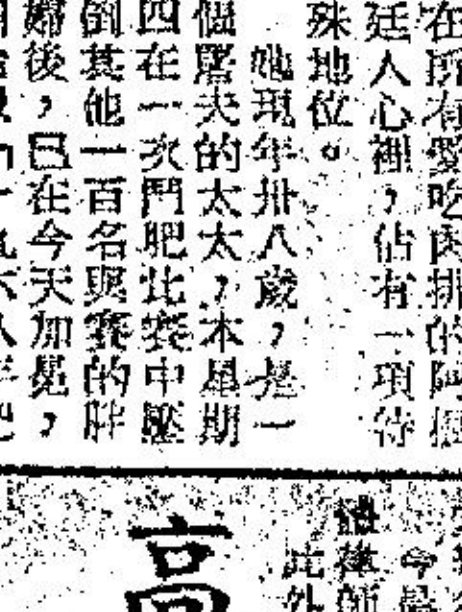 在所有愛吃肉排的阿根
廷人心裡，佔有一項特
殊地位。
她現年卅八歲，是一
個屠夫的太太，本星期
四在一次鬥肥比賽中壓
倒其他一百名與賽的胖
婦後，已在今天加冕，
高
律師
此外
今